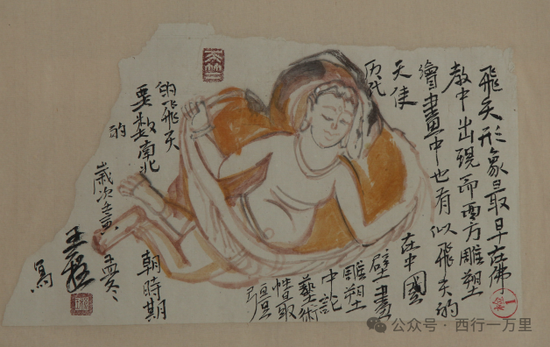 飛天形象最早在佛
教中出現而西方雕塑
繪畫中也有似飛天的
天使
在中國
历代
壁畫
雕塑
中說
藝術
性最
強
的飛天
要數南北
朝時期
的
歲次
寫
公众号·西行一万里